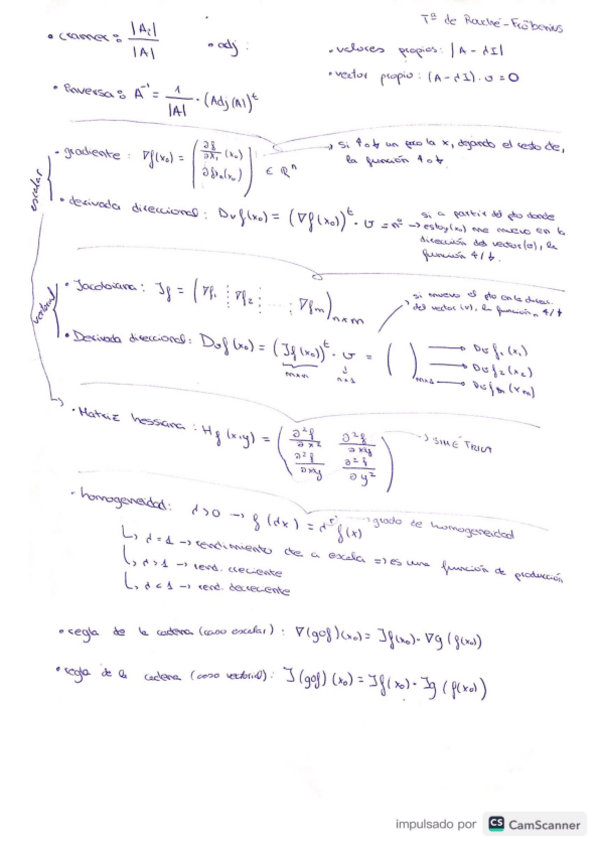 Tª de Rouché-Fröbenius
• cramer: |Ai| / |A|
• adj:
• valores propios: |A - λI|
• vector propio: (A - λI) · v = 0
• Inversa: A⁻¹ = 1/|A| · (Adj(A))ᵗ
escalar
• gradiente: ∇f(x₀) = (∂f/∂x₁ (x₀) ∂f/xₙ(x₀)) ∈ ℝⁿ
→ si ↑ o ↓ un poco la x, dejando el resto de,
la función ↑ o ↓.
• derivada direccional: Dvf(x₀) = (∇f(x₀))ᵗ · v = nº →
si a partir del pto donde
estoy (x₀) me muevo en la
dirección del vector (v), la
función ↑/↓.
vectorial
• Jacobiana: Jf = (∇f₁ ⋮ ∇f₂ ⋮ ..... ⋮ ∇fm) n×m
si muevo el pto en la direcc.
del vector (v), la función ↑/↓
• Derivada direccional: Dvf(x₀) = (Jf(x₀))ᵗ · v = ( )
m×n n×1 m×1
→ Dvf₁(x₁)
→ Dvf₂(x₂)
→ Dvfm(xm)
• Matriz hessiana: Hf(x,y) = (∂²f/∂x² ∂²f/∂xy
∂²f/∂xy ∂²f/∂y²)
→ SIMÉTRICA
• homogeneidad: λ>0 → f(λx) = λʳ f(x)
→ grado de homogeneidad
↳ λ = 1 → rendimiento de a escala => es una función de producción
↳ λ > 1 → rend. creciente
↳ λ < 1 → rend. decreciente
• regla de la cadena (caso escalar): ∇(gof)(x₀) = Jf(x₀) · ∇g(f(x₀))
• regla de la cadena (caso vectorial): J(gof)(x₀) = Jf(x₀) · Jg(f(x₀))
impulsado por CS CamScanner